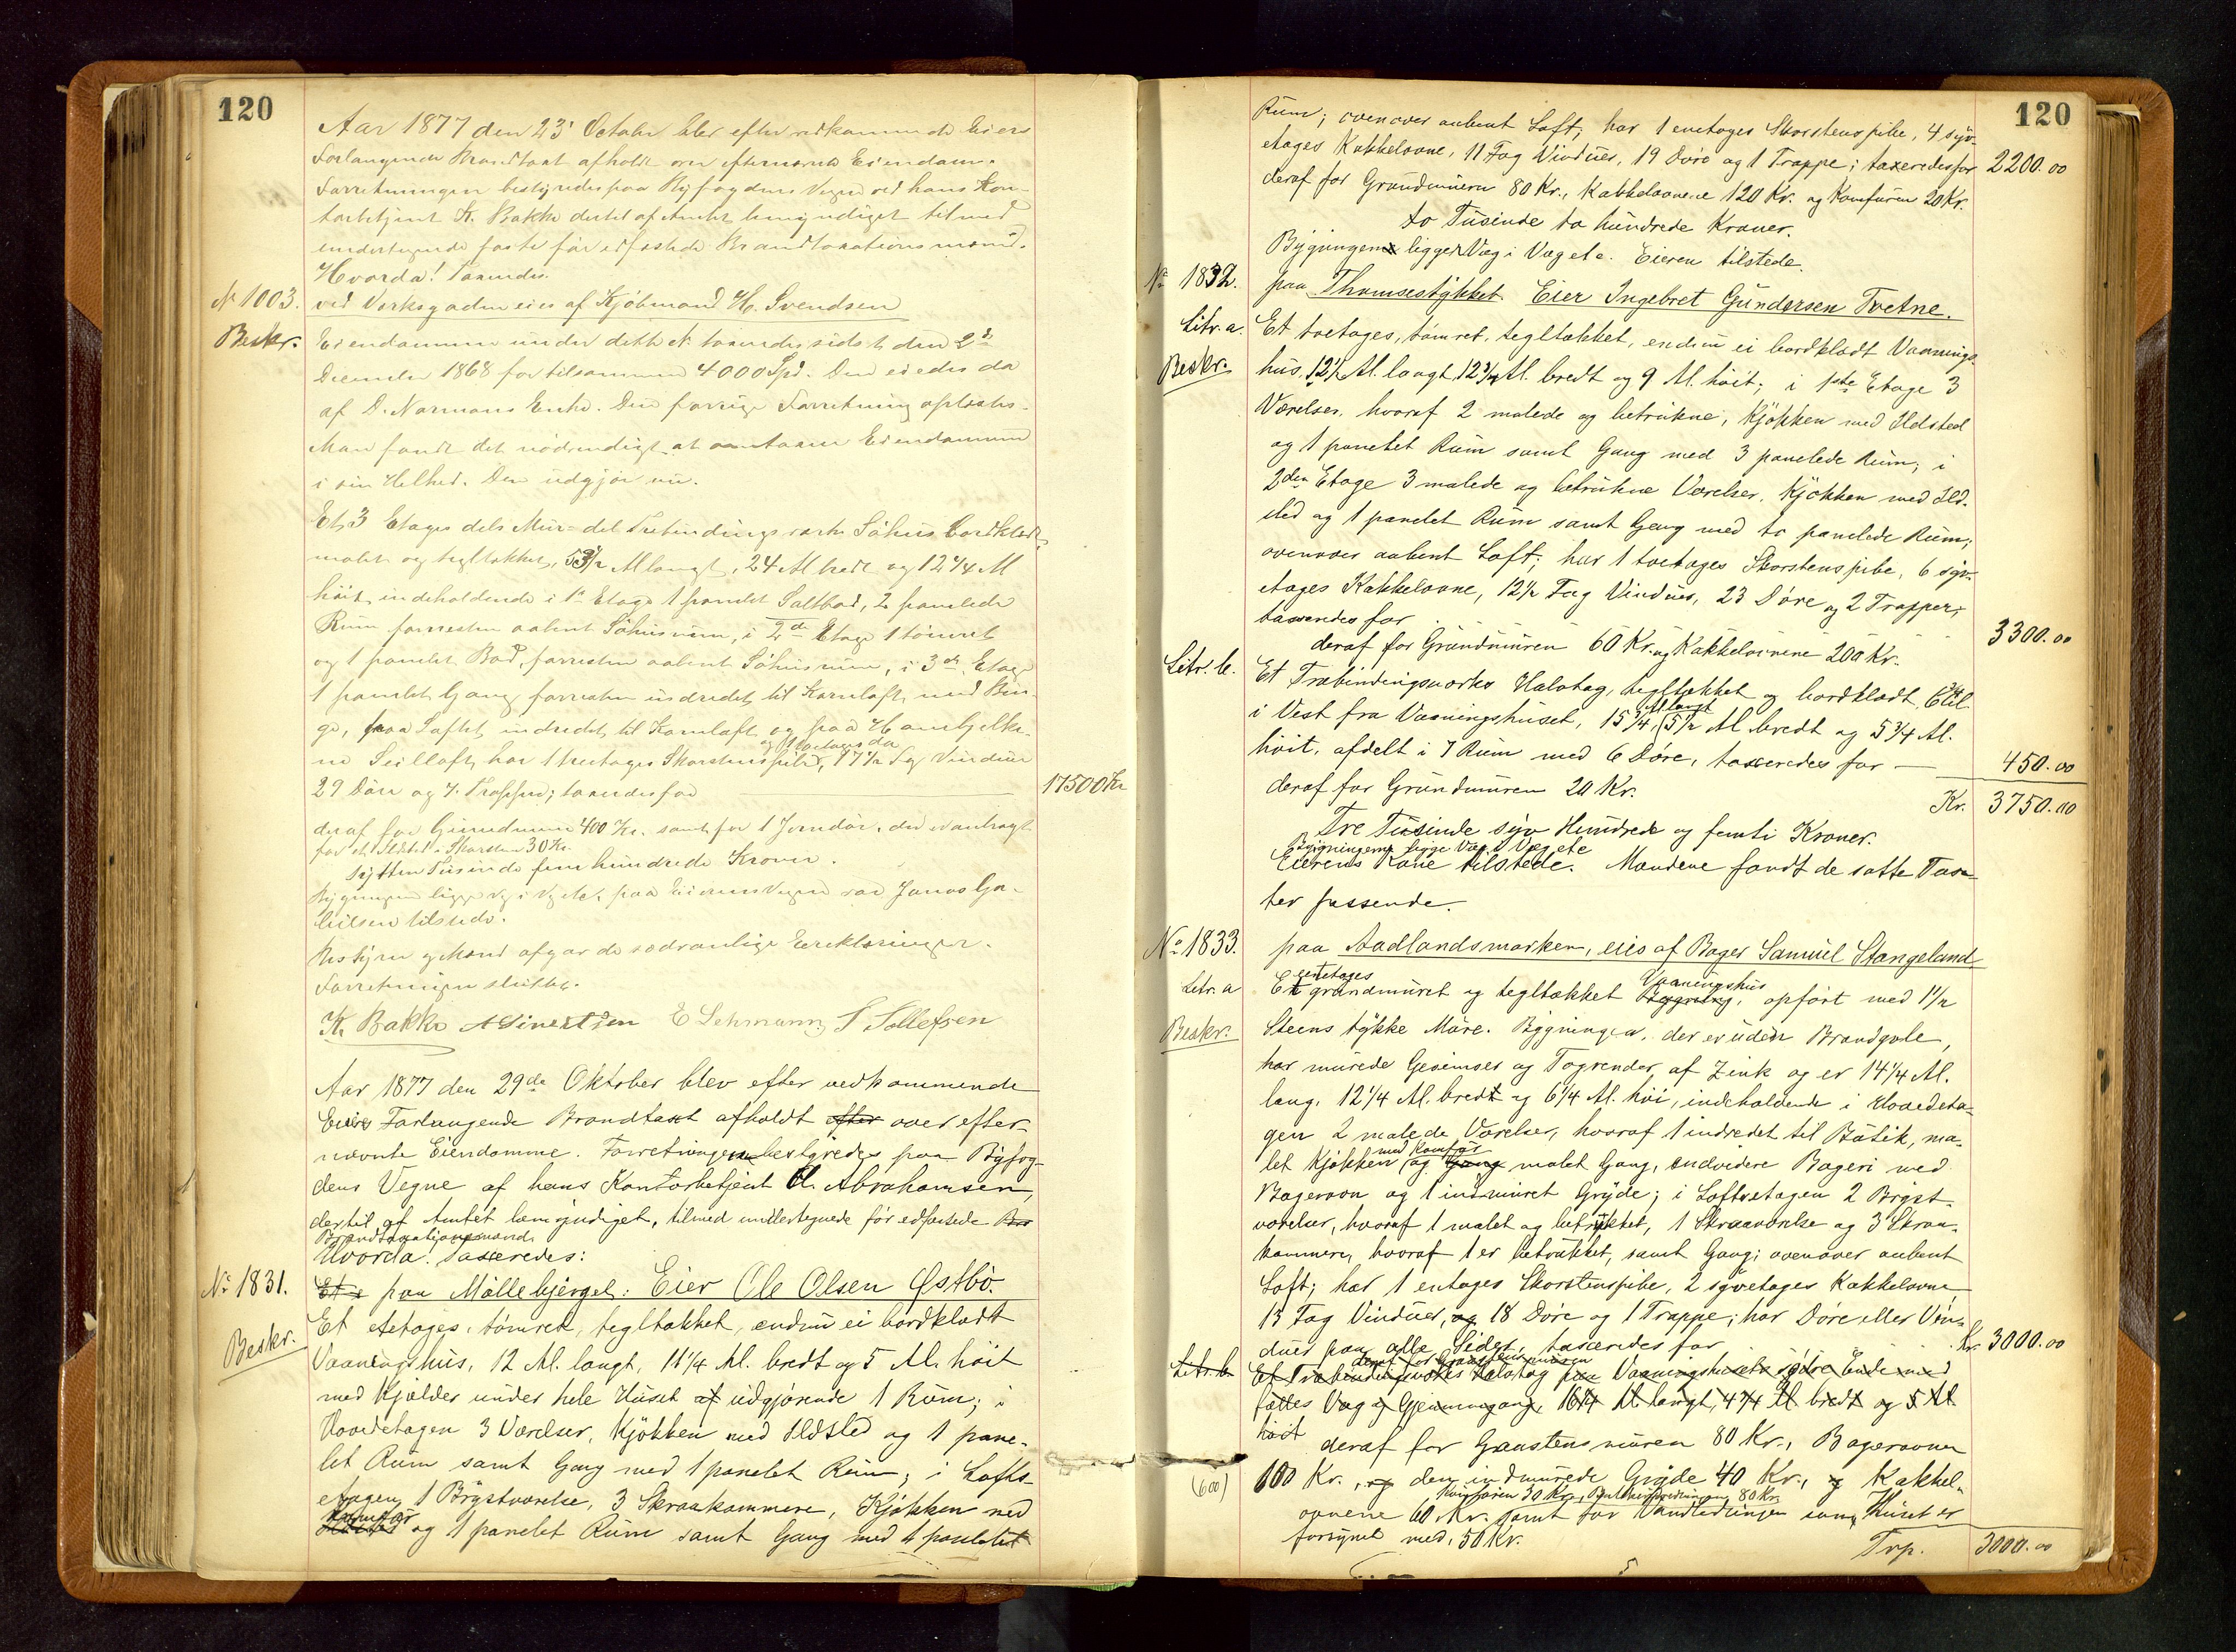 120
Aar 1877 den 23' Octobr blev efter vedkommende Eiers
Forlangende Brandtaxt afholdt over efternævnte Eiendom.
Forretningen bestyredes paa Byfogdens Vegne ved hans Kon-
torbetjent K. Bakke dertil af Amtet bemyndiget tilmed
undertegnede faste før edfæstede Brandtaxationsmænd.
Hvorda! Taxeredes.
No 1003. ved Verksgaden eies af Kjöbmand H. Svendsen
Beskr. Eiendommen under dette No taxeredes sidst den 2d
December 1868 for tilsammen 4000 Spd. Den eiedes da
af D. Normans Enke. Den forrige Forretning oplæstes.
Man fandt det nödvendigt at omtaxere Eiendommen
i sin Helhed. Den udgjör nu.
Et 3 Etages dels Mur- del Træbindingsverks Söhus, bordklædt,
malet og tegltækket, 53 1/2 Al langt, 24 Al bredt og 12 1/4 Al
höit, indeholdende i 1st Etage 1 panelet Saltbod, 2 panelede
Rum forresten aabent Söhusrum, i 2den Etage 1 tömret
og 1 panelet Bod, forresten aabent Söhusrum, i 3die Etage
1 panelet Gang forresten indredet til Kornloft med Bin-
ge, paa Loftet indredet til Kornloft og paa Hanebjelke-
ne Seilloft, har 1 treetages Skorstenspibe, 17 1/2 Fag Vinduer
29 Döre og 7 Trapper; taxeredes for 17500 Kr
deraf for Grundmuren 400 Kr. samt for 1 Jerndör, der er anbragt
for et Ildsted i Skorsten 30 Kr.
Sytten Tusinde fem hundrede Kroner.
Bygningen ligge Væg i Væg etc. paa Eierens Vegne var Jonas Ga-
bielsen tilstede.
Bestyrer og Mænd afgav de sædvanlige Erklæringer.
Forretningen sluttet.
K. Bakke A Sivertsen E Lehmann T. Tollefsen
Aar 1877 den 29de Oktober blev efter vedkommende
Eiers Forlangende Brandtaxt afholdt efter over efter-
nævnte Eiendomme. Forretningen bestyredes paa Byfog-
dens Vegne af hans Kontorbetjent A. Abrahamsen,
dertil af Amtet bemyndiget, tilmed undertegnede før edfæstede
Brandtaxationsmænd.
Hvorda! Taxeredes:
No 1831. Et paa Möllebjerget: Eier Ole Olsen Østbö.
Beskr. Et etetages, tömret, tegltækket, endnu ei bordklædt
Vaaningshus, 12 Al. langt, 11 1/4 Al. bredt og 5 Al. höit
med Kjelder under hele Huset af udgjörende 1 Rum; i
Hovedetagen 3 Værelser, Kjökken med Ildsted og 1 pane-
let Rum samt Gang med 1 panelet Rum; i Lofts-
etagen 1 Brystværelse, 3 Skraakammere, Kjökken med
Komfür og 1 panelet Rum samt Gang med 4 panelet
120
Rum; ovenover aabent Loft; har 1 enetages Skorstenspibe, 4 syv-
etages Kakkelovne, 11 Fag Vinduer, 19 Döre og 1 Trappe; taxeredes for 2200.00
deraf for Grundmuren 80 Kr., Kakkelovnene 120 Kr. og Komfuren 20 Kr.
to Tusinde to hundrede Kroner.
Bygningen ligger Væg i Væg etc. Eieren tilstede.
No 1832. paa Thomsestykket. Eier Ingebret Gundersen Tvetne.
Litr. a. Et toetages, tömret, tegltækket, endnu ei bordklædt Vaanings-
Beskr. hus, 12 1/2 Al. langt, 12 3/4 Al. bredt og 9 Al. höit; i 1ste Etage 3
Værelser, hvoraf 2 malede og betrukne, Kjökken med Ildsted
og 1 panelet Rum samt Gang med 3 panelede Rum; i
2den Etage 3 malede og betrukne Værelser, Kjökken med Ild-
sted og 1 panelet Rum samt Gang med to panelede Rum;
ovenover aabent Loft; har 1 toetages Skorstenspibe, 6 syv-
etages Kakkelovne, 12 1/2 Fag Vinduer, 23 Döre og 2 Trapper;
taxeredes for 3300.00
deraf for Grundmuren 60 Kr. og Kakkelovnene 200 Kr.
Litr. b. Et Træbindingsværks Halvtag, tegltækket og bordklædt, 6 Al.
i Vest fra Vaaningshuset, 15 3/4 Al. langt, 5 1/2 Al bredt og 5 3/4 Al.
höit, afdelt i 7 Rum med 6 Döre, taxeredes for 450.00
deraf for Grundmuren 20 Kr.
Kr. 3750.00
Tre Tusinde syv Hundrede og femti Kroner.
Bygningerne ligge Væg i Væg etc
Eierens Kone tilstede. Mændene fandt de satte Tax-
ter passende.
No 1833. paa Aadlandsmarken, eies af Bager Samuel Stangeland
Litr. a Et enetages grundmuret og tegltækket Bygning, Vaaningshus opfört med 1 1/2
Beskr. Steens tykke Mure. Bygningen, der er uden Brandgavle,
har murede Gesimser og Tagrender af Zink og er 14 1/4 Al.
lang, 12 1/4 Al. bredt og 6 1/4 Al. höi, indeholdende i Hovedeta-
gen 2 malede Værelser, hvoraf 1 indredet til Butik, ma-
let Kjökken med Komfür og Gang malet Gang, endvidere Bageri med
Bagerovn og 1 indmuret Gryde; i Loftsetagen 2 Bryst-
værelser, hvoraf 1 malet og betrukket, 1 Skraaværelse og 3 Skraa-
kammere, hvoraf 1 er betrukket, samt Gang; ovenover aabent
Loft; har 1 entages Skorstenspibe, 2 syvetages Kakkelovne
13 Fag Vinduer, og 18 Döre og 1 Trappe; har Döre eller Vin-
duer paa alle Sider, taxeredes for Kr. 3000.00
Litr. b. Et Træbindingsværks Halvtag paa Vaaningshusets södre Ende med
fælles Væg og Gjennemgang, 16 1/4 Al langt, 4 3/4 Al bredt og 5 Al
höit deraf for Graastensmuren 80 Kr., Bagerovnen
(600) 100 Kr., og den indmurede Gryde 40 Kr., og Kakkel-
Komfüren 30 Kr., Butikindredningen 80 Kr
ovnene 60 Kr. samt for Vandledningen som Huset er
forsynet med, 50 Kr.
Trp. 3000.00